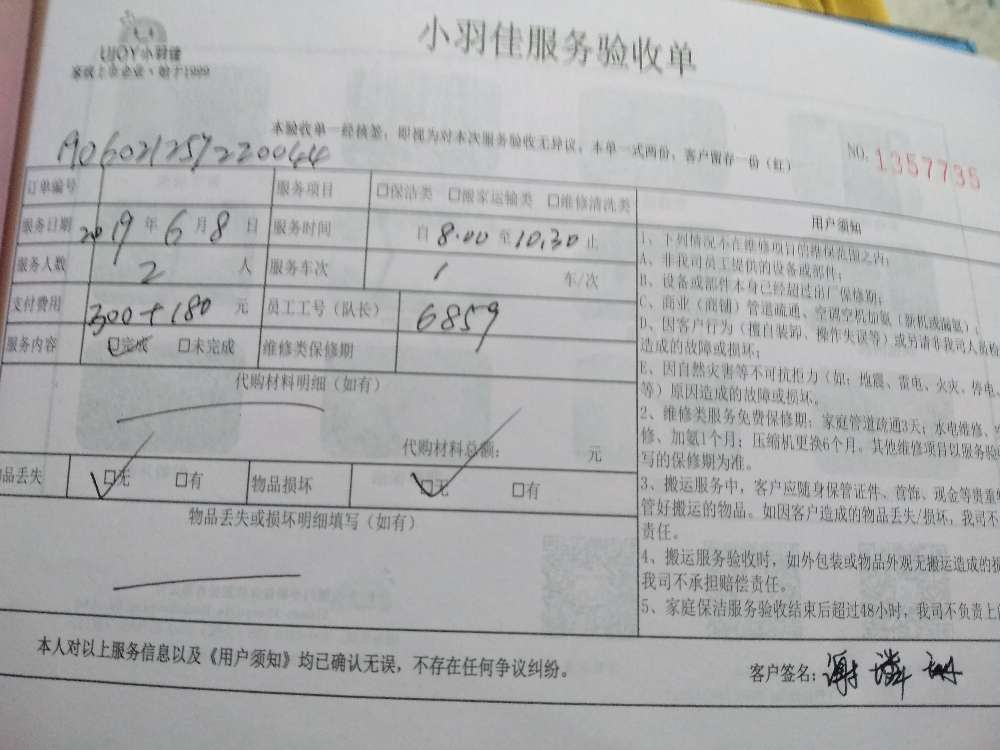 UJOY 小羽佳
家政上市企业·始于1999
小羽佳服务验收单
本验收单一经核签,即视为对本次服务验收无异议,本单一式两份,客户留存一份(红)
NO. 1357735
1906021257220044
订单编号 服务项目 □保洁类 □搬家运输类 □维修清洗类
服务日期 2019 年 6 月 8 日 服务时间 自 8.00 至 10.30 止
服务人数 2 人 服务车次 1 车/次
支付费用 300+180 元 员工工号(队长) 6859
服务内容 □完成 □未完成 维修类保修期
代购材料明细(如有)
代购材料总额: 元
物品丢失 □无 □有 物品损坏 □无 □有
物品丢失或损坏明细填写(如有)
用户须知
1、下列情况不在维修项目的维保范围之内:
A、非我司员工提供的设备或部件;
B、设备或部件本身已经超过出厂保修期;
C、商业(商铺)管道疏通、空调空机加氨(新机或漏氨);
D、因客户行为(擅自装卸、操作失误等)或另请非我司人员检
造成的故障或损坏;
E、因自然灾害等不可抗拒力(如:地震、雷电、火灾、停电
等)原因造成的故障或损坏。
2、维修类服务免费保修期:家庭管道疏通3天;水电维修、
修、加氨1个月;压缩机更换6个月。其他维修项目以服务验
写的保修期为准。
3、搬运服务中,客户应随身保管证件、首饰、现金等贵重
管好搬运的物品。如因客户造成的物品丢失/损坏,我司不
责任。
4、搬运服务验收时,如外包装或物品外观无搬运造成的损
我司不承担赔偿责任。
5、家庭保洁服务验收结束后超过48小时,我司不负责上
本人对以上服务信息以及《用户须知》均已确认无误,不存在任何争议纠纷。
客户签名:谢